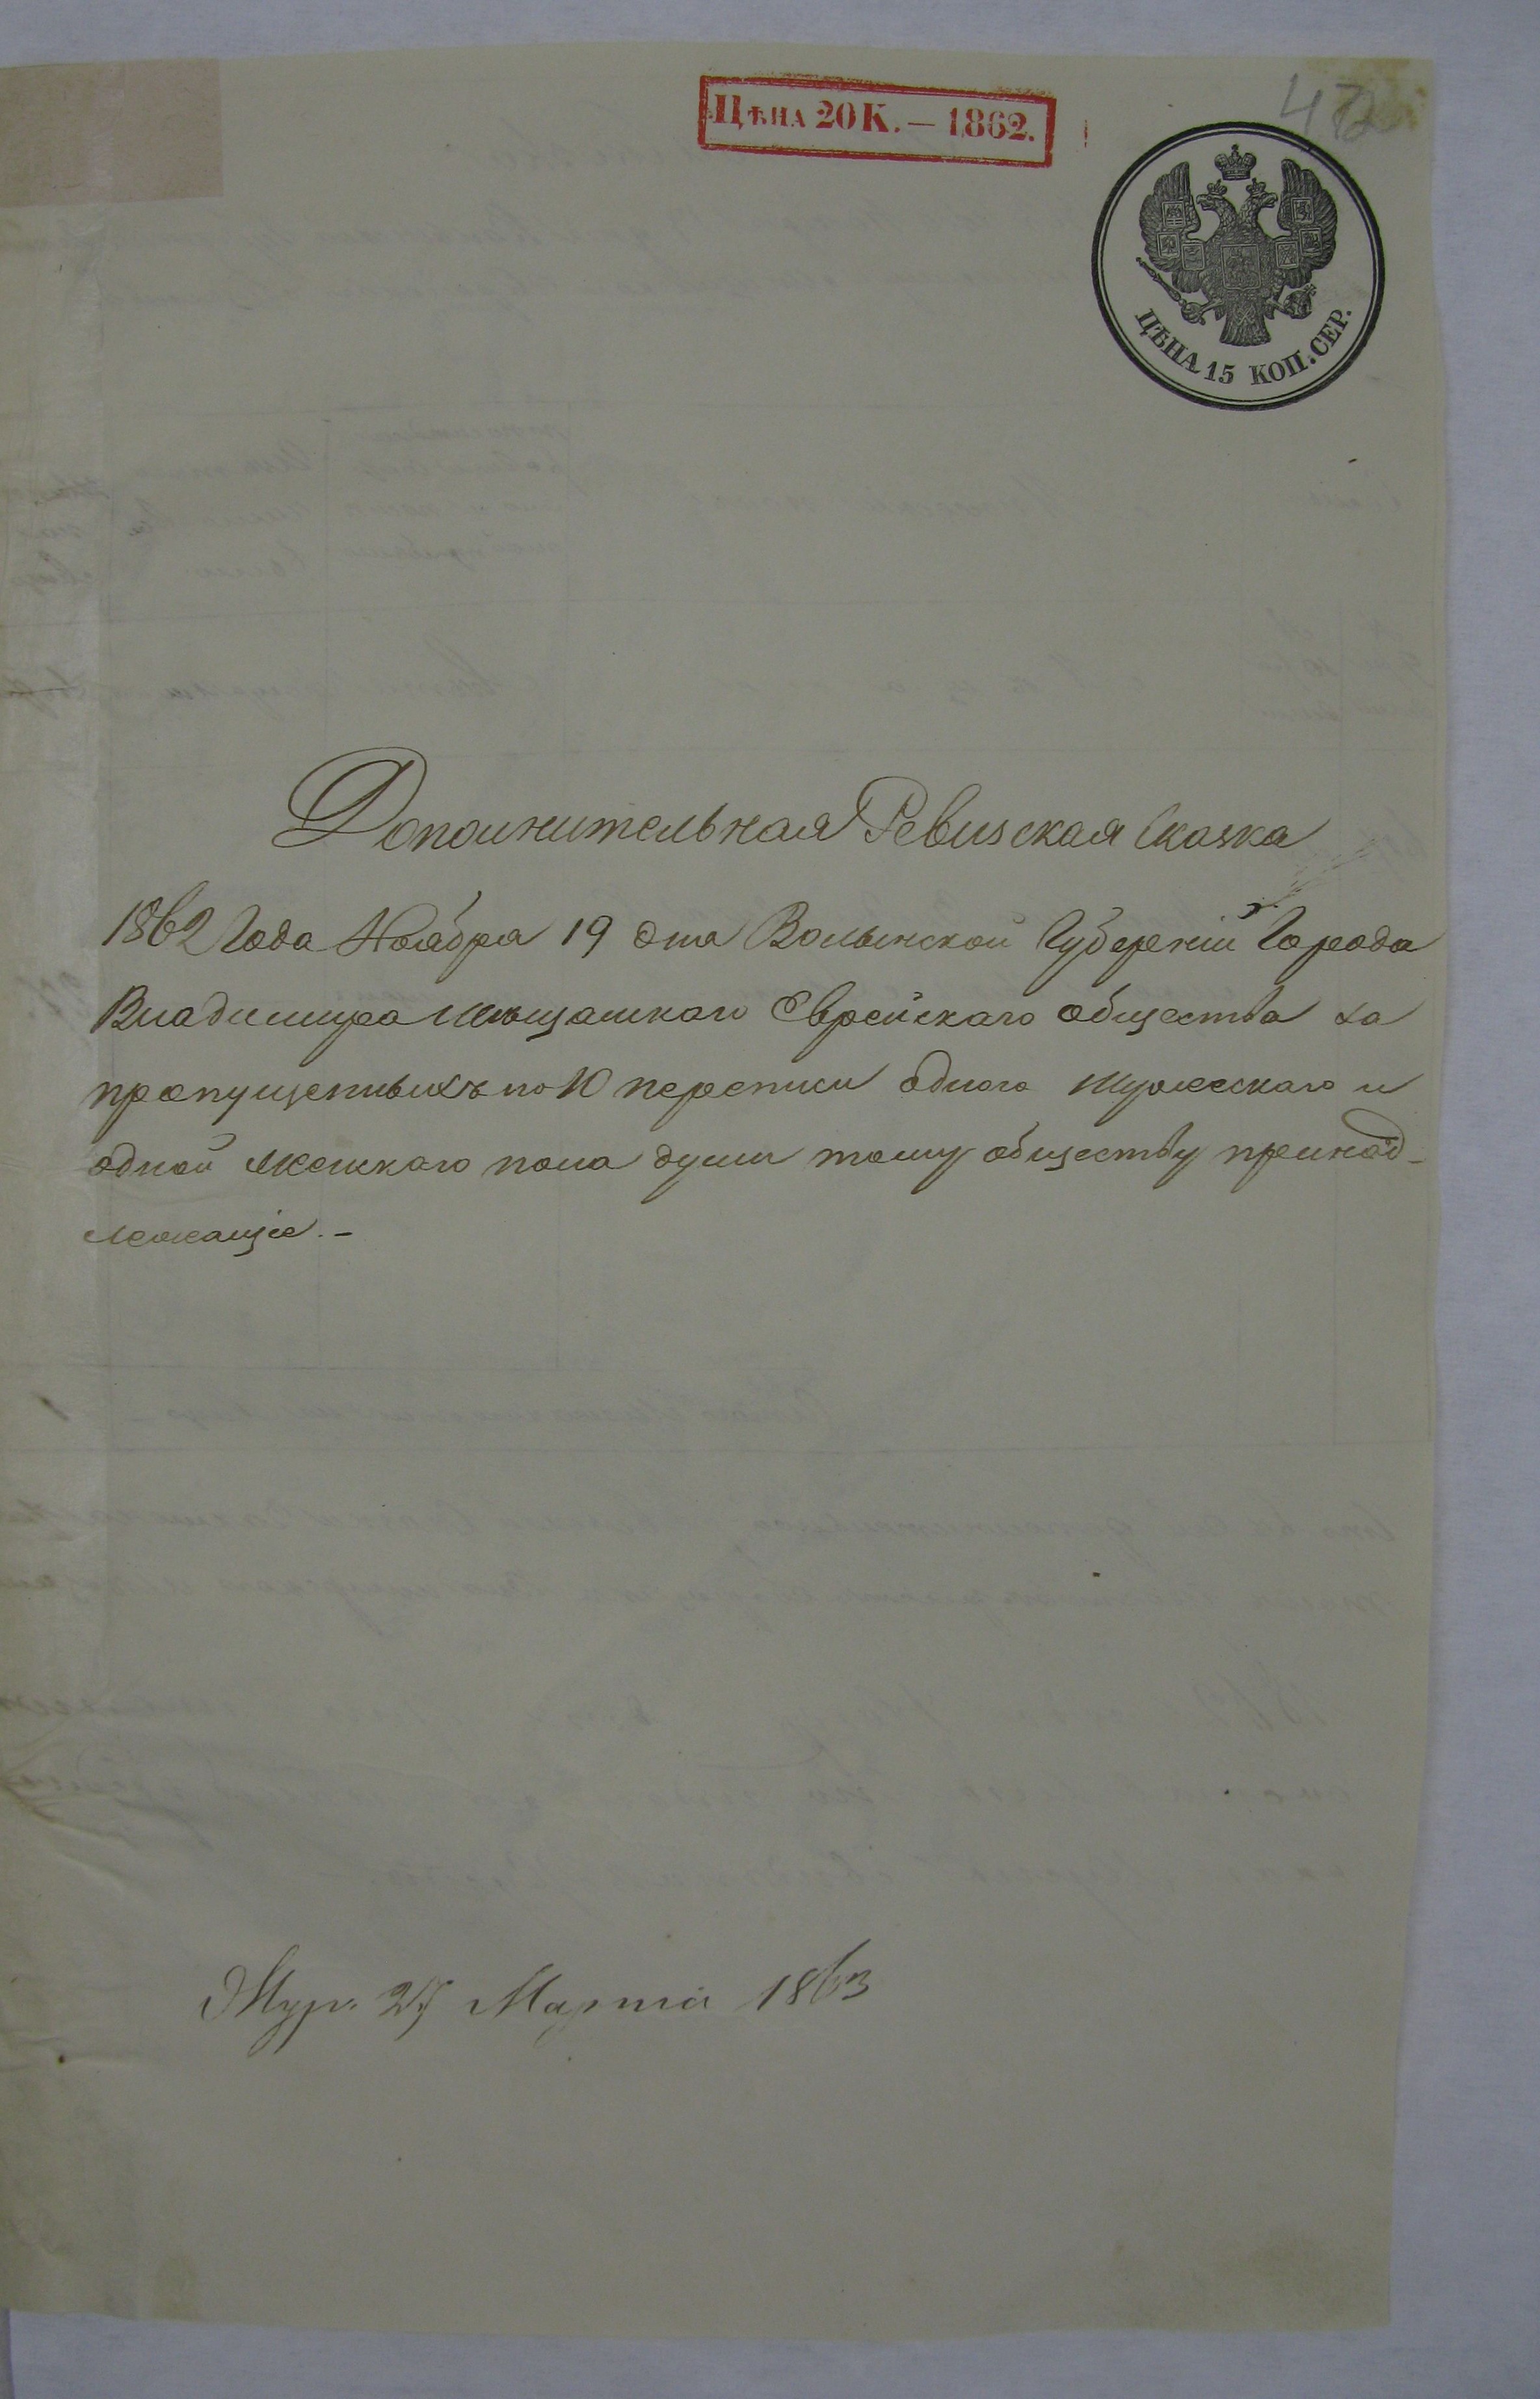 ЦѢНА 20 К. — 1862.
42
ЦѢНА 15 КОП. СЕР.
Дополнительная Ревизская Сказка
1862 Года Ноября 19 дня Волынской Губерніи Города
Владимира мѣщанскаго Еврейскаго общества за
пропущенныхъ по 10 переписи одного мужескаго и
одной женскаго пола души тому обществу принад-
лежащіе. –
Жур. 27 Марта 1863